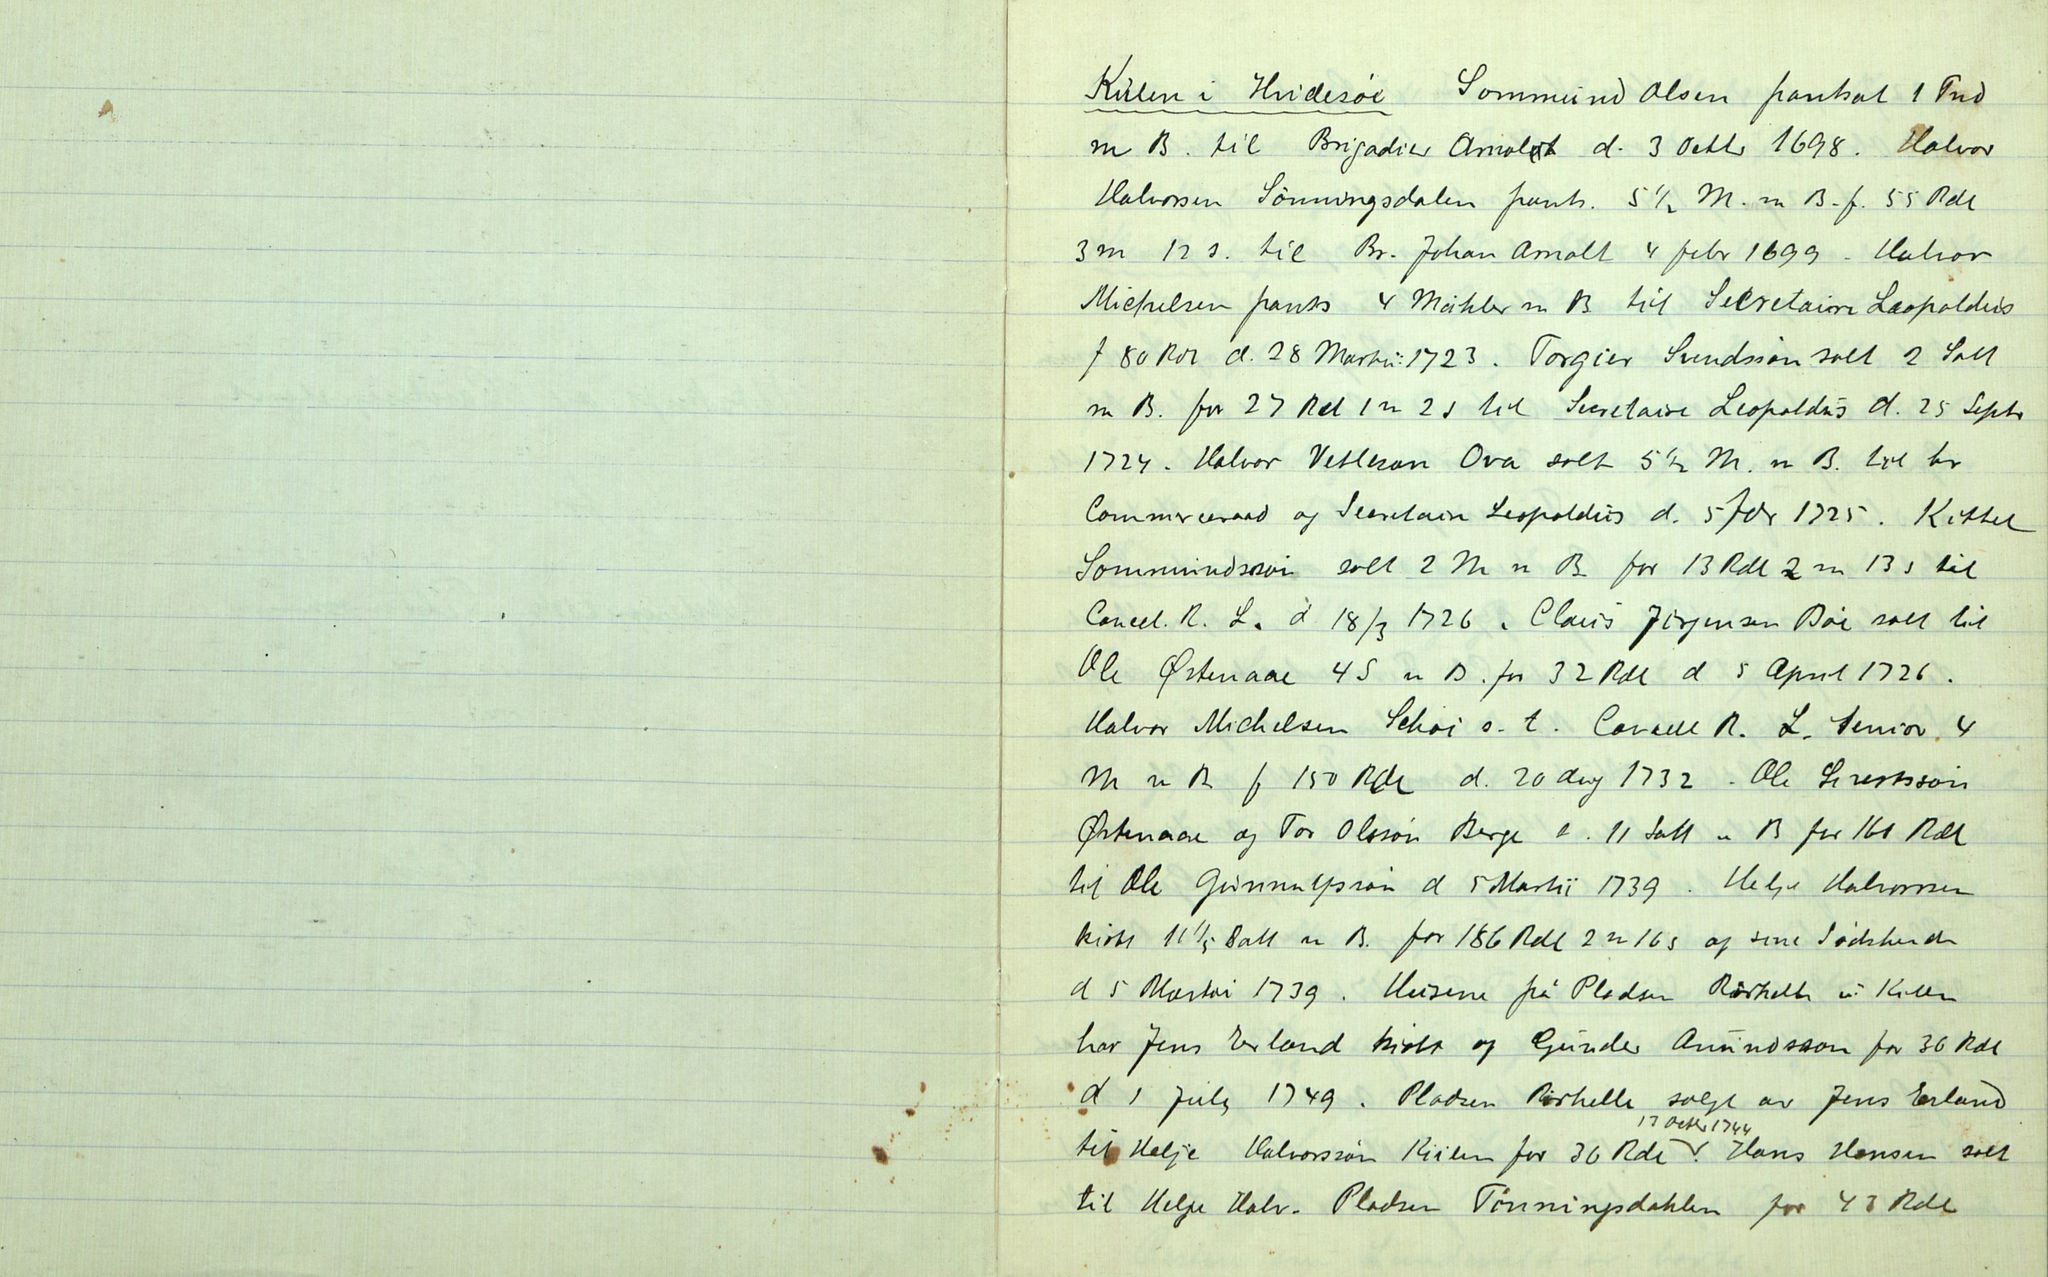 Kiilen i Hvidesøe Sommund Olsen pantsat 1 Tnd
m B. til Brigadier Arnoldt d. 3 Octbr 1698. Halvor
Halvorsen Sönningsdalen pants. 5 1/2 M. m B. f. 55 Rdl
3 m 12 s. til Br. Johan Arnolt 4 febr 1699 - Halvor
Michelsen pants 4 Mæhler m B til Secretaire Leopoldus
f 80 Rdl d. 28 Martii 1723. Torgier Svendssøn solt 2 Satt
m B. for 27 Rdl 1 m 2 s til Secretaire Leopoldus d. 25 Septr
1724. Halvor Vetleson Ova solt 5 1/2 M. m B. til hr
Commerceraad og Secretaire Leopoldus d. 5 1725. Kittel
Sommundssøn solt 2 M m B for 13 Rdl 2 m 13 s til
Cancel. R. L. d 18/3 1726. Claus Jörgensen Böe solt til
Ole Østenaae 4 S m B. for 32 Rdl d 5 April 1726.
Halvor Michelsen Schoi s. t. Cancell R. L. senior 4
M m B f 150 Rdl d. 20 aug 1732 - Ole Sivertssøn
Østenaae og Tor Olssøn Berge s. 11 Satt m B for 161 Rdl
til Ole Gunnulfsøn d 5 Martii 1739. Helje Halvorsen
kiøbt 11 1/5 Satt m B. for 186 Rdl 2 m 16 s af sine Sødskende
d 5 Martii 1739. Husene på Pladsen Rörhelle u. Kiilen
har Jens Erland kiøbt af Gunder Amundssøn for 36 Rdl
d 1 July 1749. Pladsen Rörhelle solgt av Jens Erland
17 Octbr 1744
til Helje Halvorssøn Kiilen for 36 Rdl. Hans Hansen solt
til Helje Halv. Pladsen Tönningsdahlen for 43 Rdl